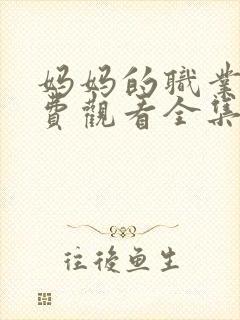 妈妈的職業
費觀看全集
往後鱼生